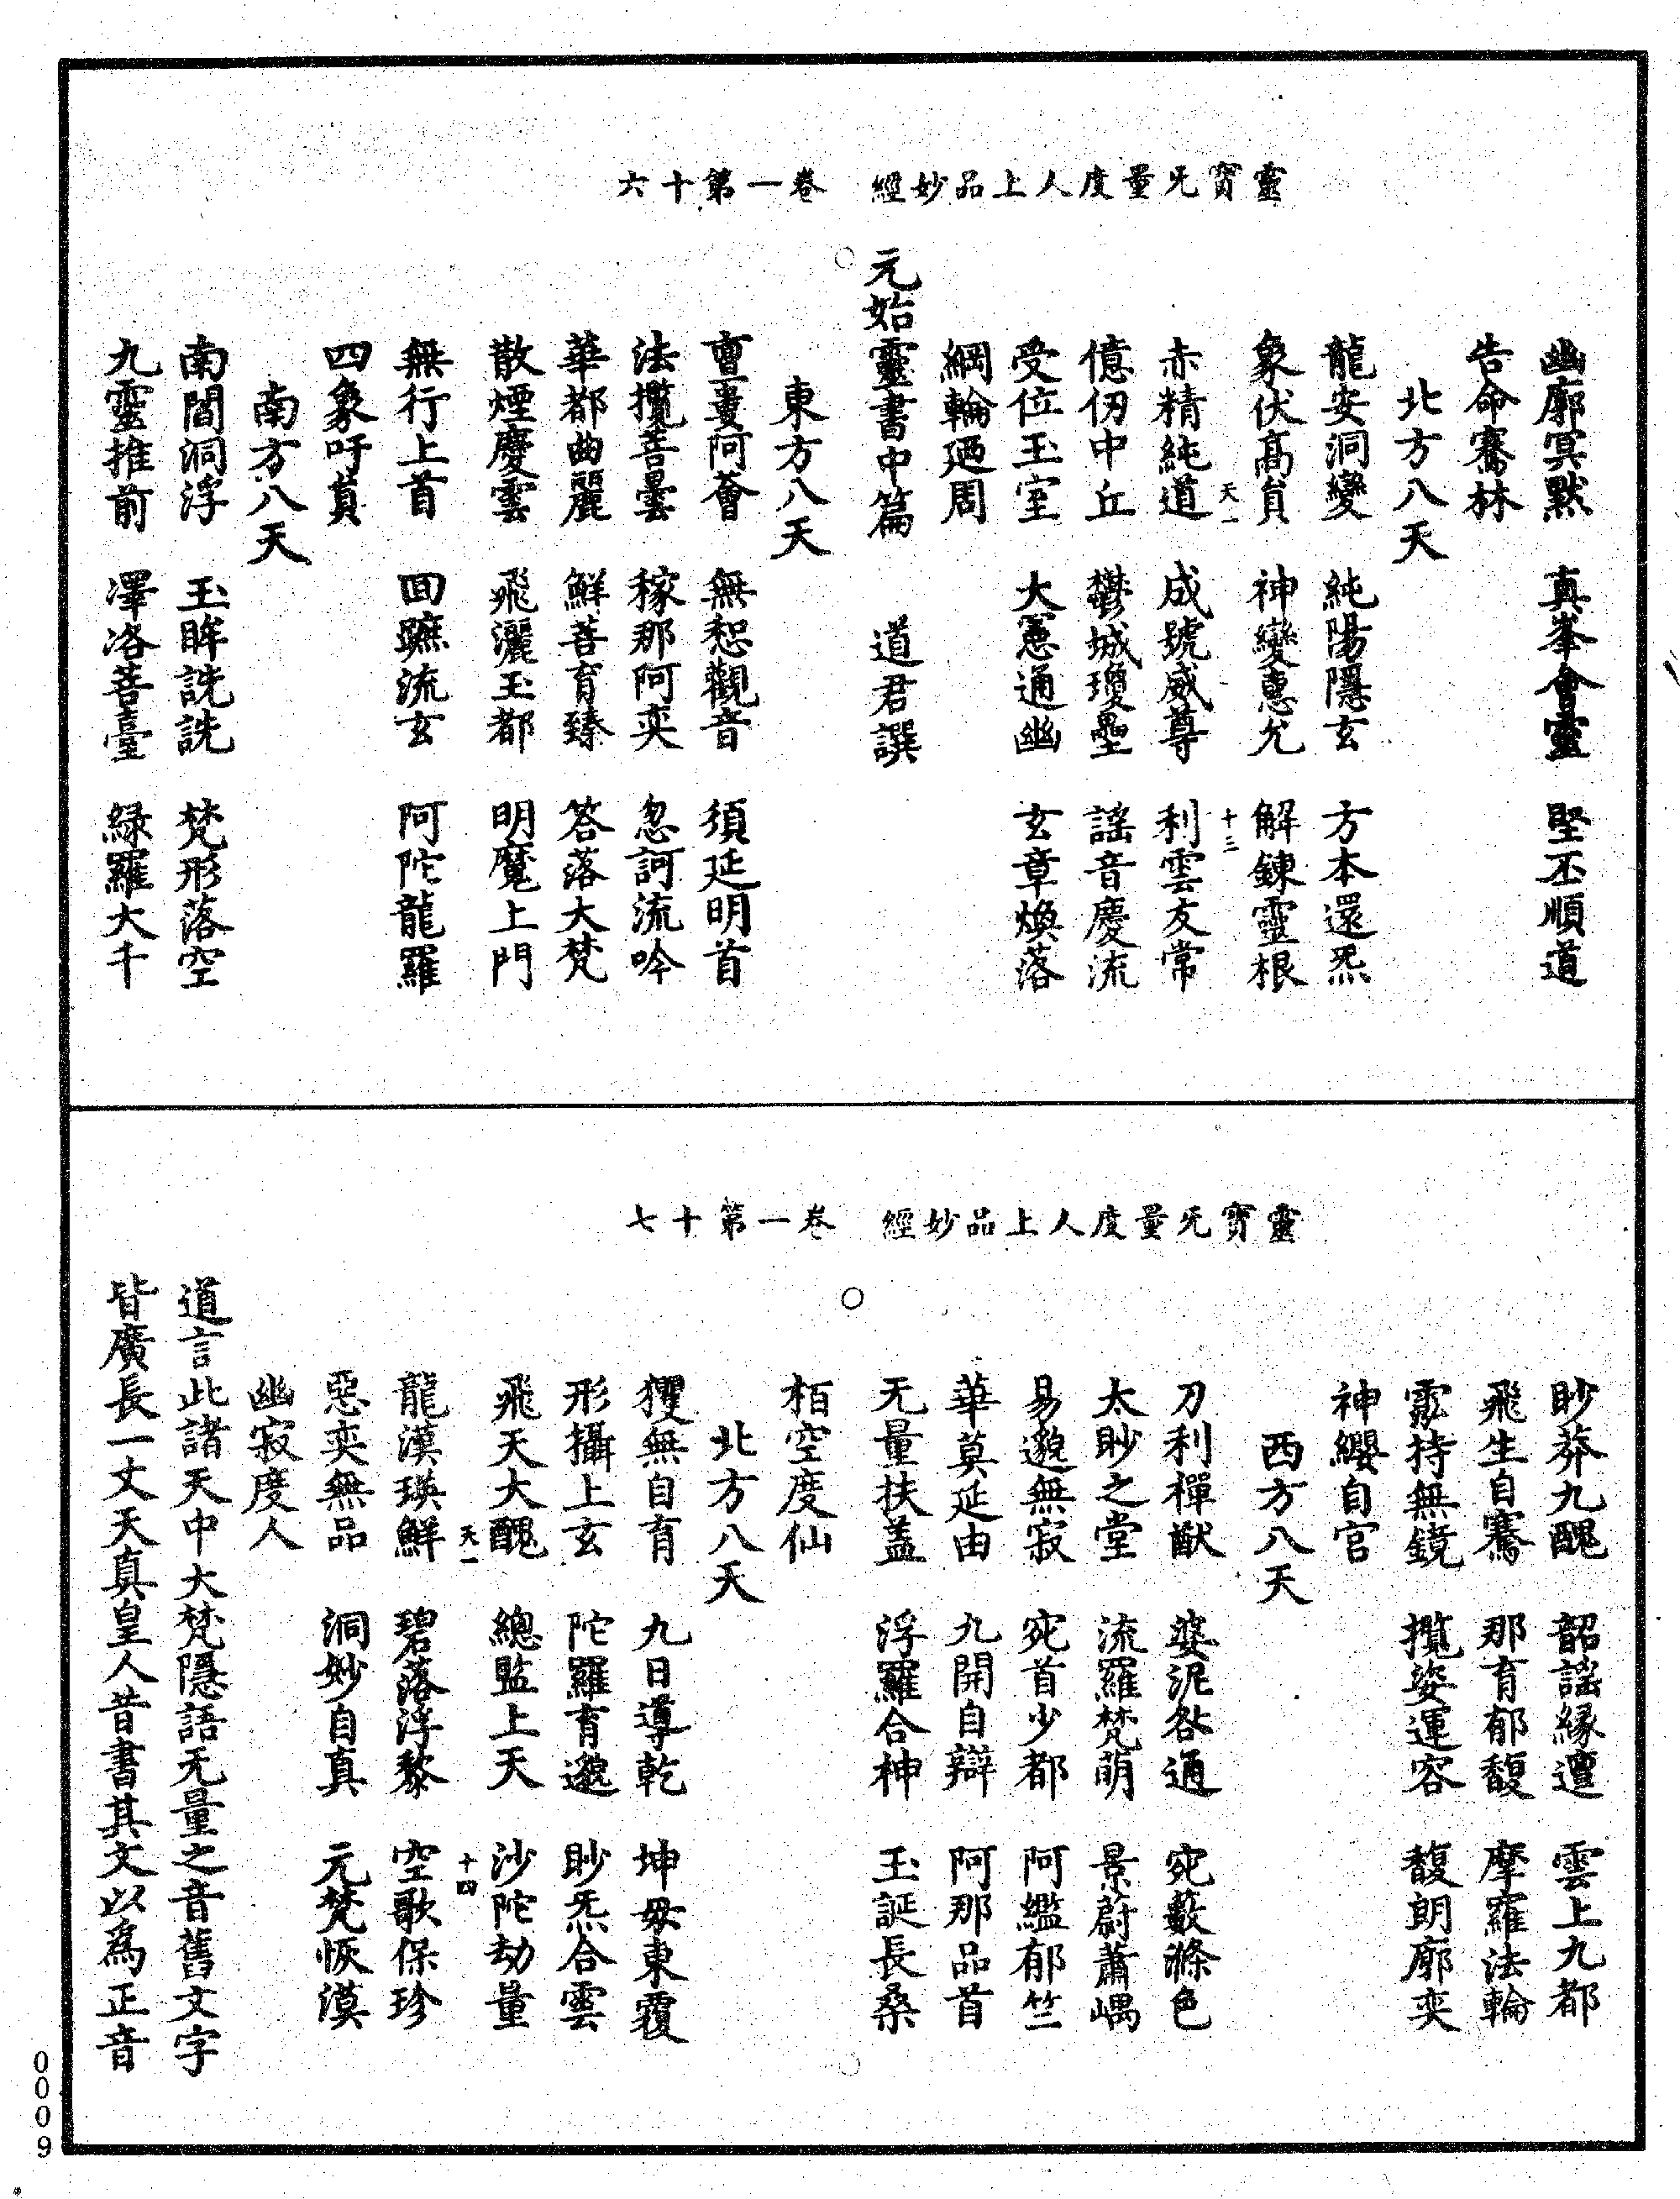 靈寶旡量度人上品妙經　卷一第十六
幽廓冥默　真峯會靈　堅丕順道
告命騫林
北方八天
龍安洞變　純陽隱玄　方本還炁
象伏髙貟　神變惠允　解錬靈根
天一　十三
赤精純道　成號威尊　利雲友常
億仞中丘　欝城瓊壘　謡音慶流
受位玉室　大慝通幽　玄章煥落
綱輪廼周
元始靈書中篇　道君譔
東方八天
亶婁阿薈　無惒觀音　須延明首
法攬菩曇　稼那阿奕　忽訶流吟
華都曲麗　鮮菩育臻　答落大梵
散煙慶雲　飛灑玉都　明魔上門
無行上首　回蹠流玄　阿陀龍羅
四象吁貟
南方八天
南閻洞浮　玉眸詵詵　梵形落空
九靈推前　澤洛菩臺　緑羅大千
靈寶旡量度人上品妙經　卷一第十七
眇莽九醜　韶謡縁邅　雲上九都
飛生自騫　那育郁馥　摩羅法輪
霐持無鏡　攬姿運容　馥朗廓奕
神纓自宫
西方八天
刀利禪猷　婆泥咎通　宛藪滌色
太眇之堂　流羅梵萌　景蔚蕭嵎
易邈無寂　宛首少都　阿㰖郁竺
華莫延由　九開自辯　阿那品首
无量扶蓋　浮羅合神　玉誕長桑
栢空度仙
北方八天
玃無自育　九日導乾　坤母東覆
形攝上玄　陀羅育邈　眇炁合雲
飛天大醜　總監上天　沙陀劫量
天一　十四
龍漠瑛鮮　碧落浮黎　空歌保珍
惡奕無品　洞妙自真　元梵恢漠
幽寂度人
道言此諸天中大梵隱語无量之音舊文字
皆廣長一丈天真皇人昔書其文以爲正音
00009